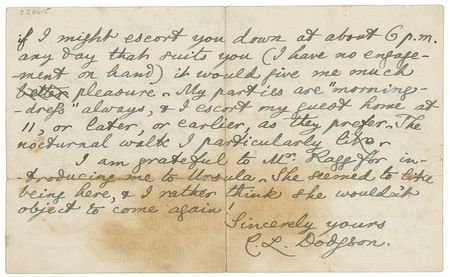 if I might escort you down at about 6 p.m.
any day that suits you (I have no engage-
ment on hand) it would give me much
better pleasure. My parties are "morning-
-dress" always, & I escort my guest home at
11, or later, or earlier, as they prefer. The
nocturnal walk I particularly like.
I am grateful to Mrs. Ragg for in-
troducing me to Ursula. She seemed to like
being here, & I rather think she wouldn't
object to come again!
Sincerely yours
C. L. Dodgson.